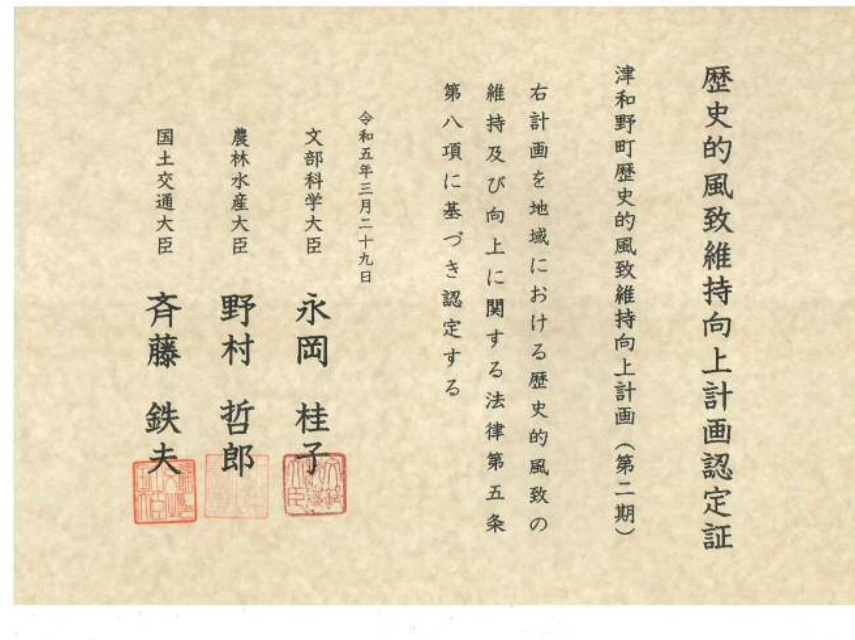 歴史的風致維持向上計画認定証
津和野町歴史的風致維持向上計画（第二期）
右計画を地域における歴史的風致の
維持及び向上に関する法律第五条
第八項に基づき認定する
令和五年三月二十九日
文部科学大臣　永岡　桂子
農林水産大臣　野村　哲郎
国土交通大臣　斉藤　鉄夫